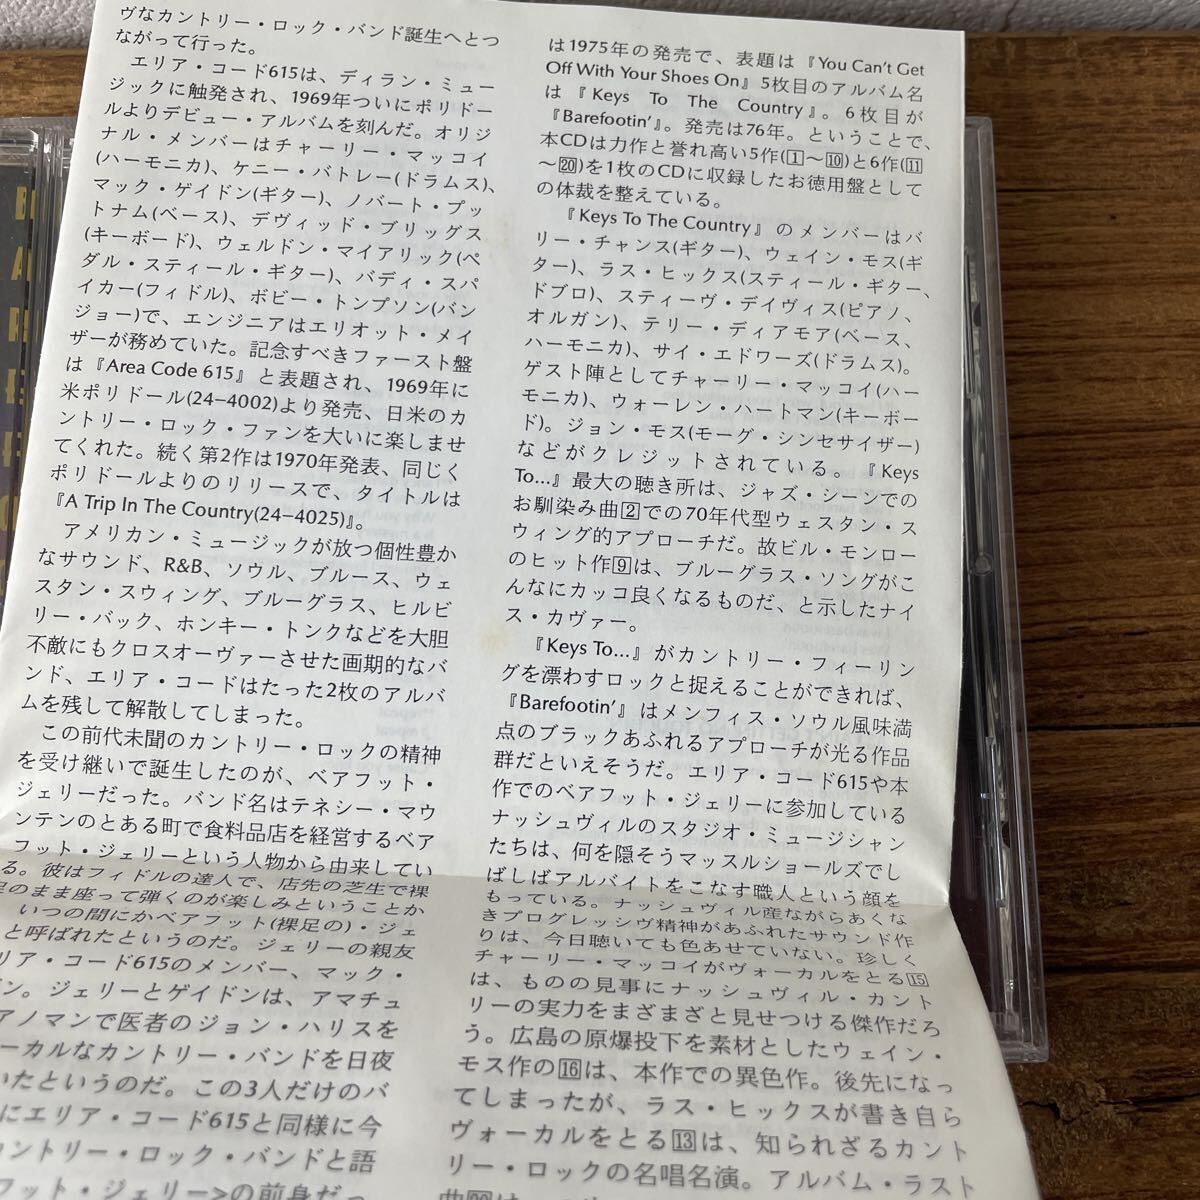 ヴなカントリー・ロック・バンド誕生へとつ
ながって行った。
エリア・コード615は、ディラン・ミュー
ジックに触発され、1969年ついにポリドー
ルよりデビュー・アルバムを刻んだ。オリジ
ナル・メンバーはチャーリー・マッコイ
(ハーモニカ)、ケニー・バトレー(ドラムス)、
マック・ゲイドン(ギター)、ノバート・プッ
トナム(ベース)、デヴィッド・ブリッグス
(キーボード)、ウェルドン・マイアリック(ペ
ダル・スティール・ギター)、バディ・スパ
イカー(フィドル)、ボビー・トンプソン(バン
ジョー)で、エンジニアはエリオット・メイ
ザーが務めていた。記念すべきファースト盤
は『Area Code 615』と表題され、1969年に
米ポリドール(24−4002)より発売、日米のカ
ントリー・ロック・ファンを大いに楽しませ
てくれた。続く第2作は1970年発表、同じく
ポリドールよりのリリースで、タイトルは
『A Trip In The Country(24−4025)』。
アメリカン・ミュージックが放つ個性豊か
なサウンド、R&B、ソウル、ブルース、ウェ
スタン・スウィング、ブルーグラス、ヒルビ
リー・バック、ホンキー・トンクなどを大胆
不敵にもクロスオーヴァーさせた画期的なバ
ンド、エリア・コードはたった2枚のアルバ
ムを残して解散してしまった。
この前代未聞のカントリー・ロックの精神
を受け継いで誕生したのが、ベアフット・
ジェリーだった。バンド名はテネシー・マウ
ンテンのとある町で食料品店を経営するベア
フット・ジェリーという人物から由来してい
る。彼はフィドルの達人で、店先の芝生で裸
足のまま座って弾くのが楽しみということか
いつの間にかベアフット(裸足の)・ジェ
と呼ばれたというのだ。ジェリーの親友
リア・コード615のメンバー、マック・
ン。ジェリーとゲイドンは、アマチュ
アノマンで医者のジョン・ハリスを
ーカルなカントリー・バンドを日夜
いたというのだ。この3人だけのバ
にエリア・コード615と同様に今
カントリー・ロック・バンドと語
フット・ジェリー>の前身だっ
は1975年の発売で、表題は『You Can't Get
Off With Your Shoes On』5枚目のアルバム名
は『Keys To The Country』。6枚目が
『Barefootin'』。発売は76年。ということで、
本CDは力作と誉れ高い5作(1〜10)と6作(11
〜20)を1枚のCDに収録したお徳用盤として
の体裁を整えている。
『Keys To The Country』のメンバーはバ
リー・チャンス(ギター)、ウェイン・モス(ギ
ター)、ラス・ヒックス(スティール・ギター、
ドブロ)、スティーヴ・デイヴィス(ピアノ、
オルガン)、テリー・ディアモア(ベース、
ハーモニカ)、サイ・エドワーズ(ドラムス)。
ゲスト陣としてチャーリー・マッコイ(ハー
モニカ)、ウォーレン・ハートマン(キーボー
ド)。ジョン・モス(モーグ・シンセサイザー)
などがクレジットされている。『Keys
To...』最大の聴き所は、ジャズ・シーンでの
お馴染み曲2での70年代型ウェスタン・ス
ウィング的アプローチだ。故ビル・モンロー
のヒット作9は、ブルーグラス・ソングがこ
んなにカッコ良くなるものだ、と示したナイ
ス・カヴァー。
『Keys To...』がカントリー・フィーリン
グを漂わすロックと捉えることができれば、
『Barefootin'』はメンフィス・ソウル風味満
点のブラックあふれるアプローチが光る作品
群だといえそうだ。エリア・コード615や本
作でのベアフット・ジェリーに参加している
ナッシュヴィルのスタジオ・ミュージシャン
たちは、何を隠そうマッスルショールズでし
ばしばアルバイトをこなす職人という顔を
もっている。ナッシュヴィル産ながらあくな
きプログレッシヴ精神があふれたサウンド作
りは、今日聴いても色あせていない。珍しく
チャーリー・マッコイがヴォーカルをとる15
は、ものの見事にナッシュヴィル・カント
リーの実力をまざまざと見せつける傑作だろ
う。広島の原爆投下を素材としたウェイン・
モス作の16は、本作での異色作。後先になっ
てしまったが、ラス・ヒックスが書き自ら
ヴォーカルをとる13は、知られざるカント
リー・ロックの名唱名演。アルバム・ラスト